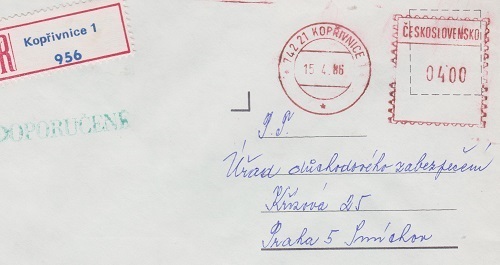 R
Kopřivnice 1
956
742 21 KOPŘIVNICE 1
15.4.86
ČESKOSLOVENSKO
0400
DOPORUČENĚ
P.P.
Úřad důchodového zabezpečení
Křížová 25
Praha 5 Smíchov